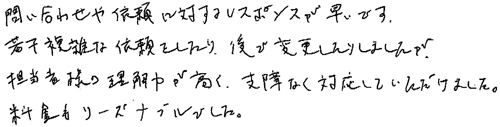 問い合わせや依頼に対するレスポンスが早いです。
若干複雑な依頼をしたり、後で変更したりしましたが、
担当者様の理解力が高く、支障なく対応していただけました。
料金もリーズナブルでした。